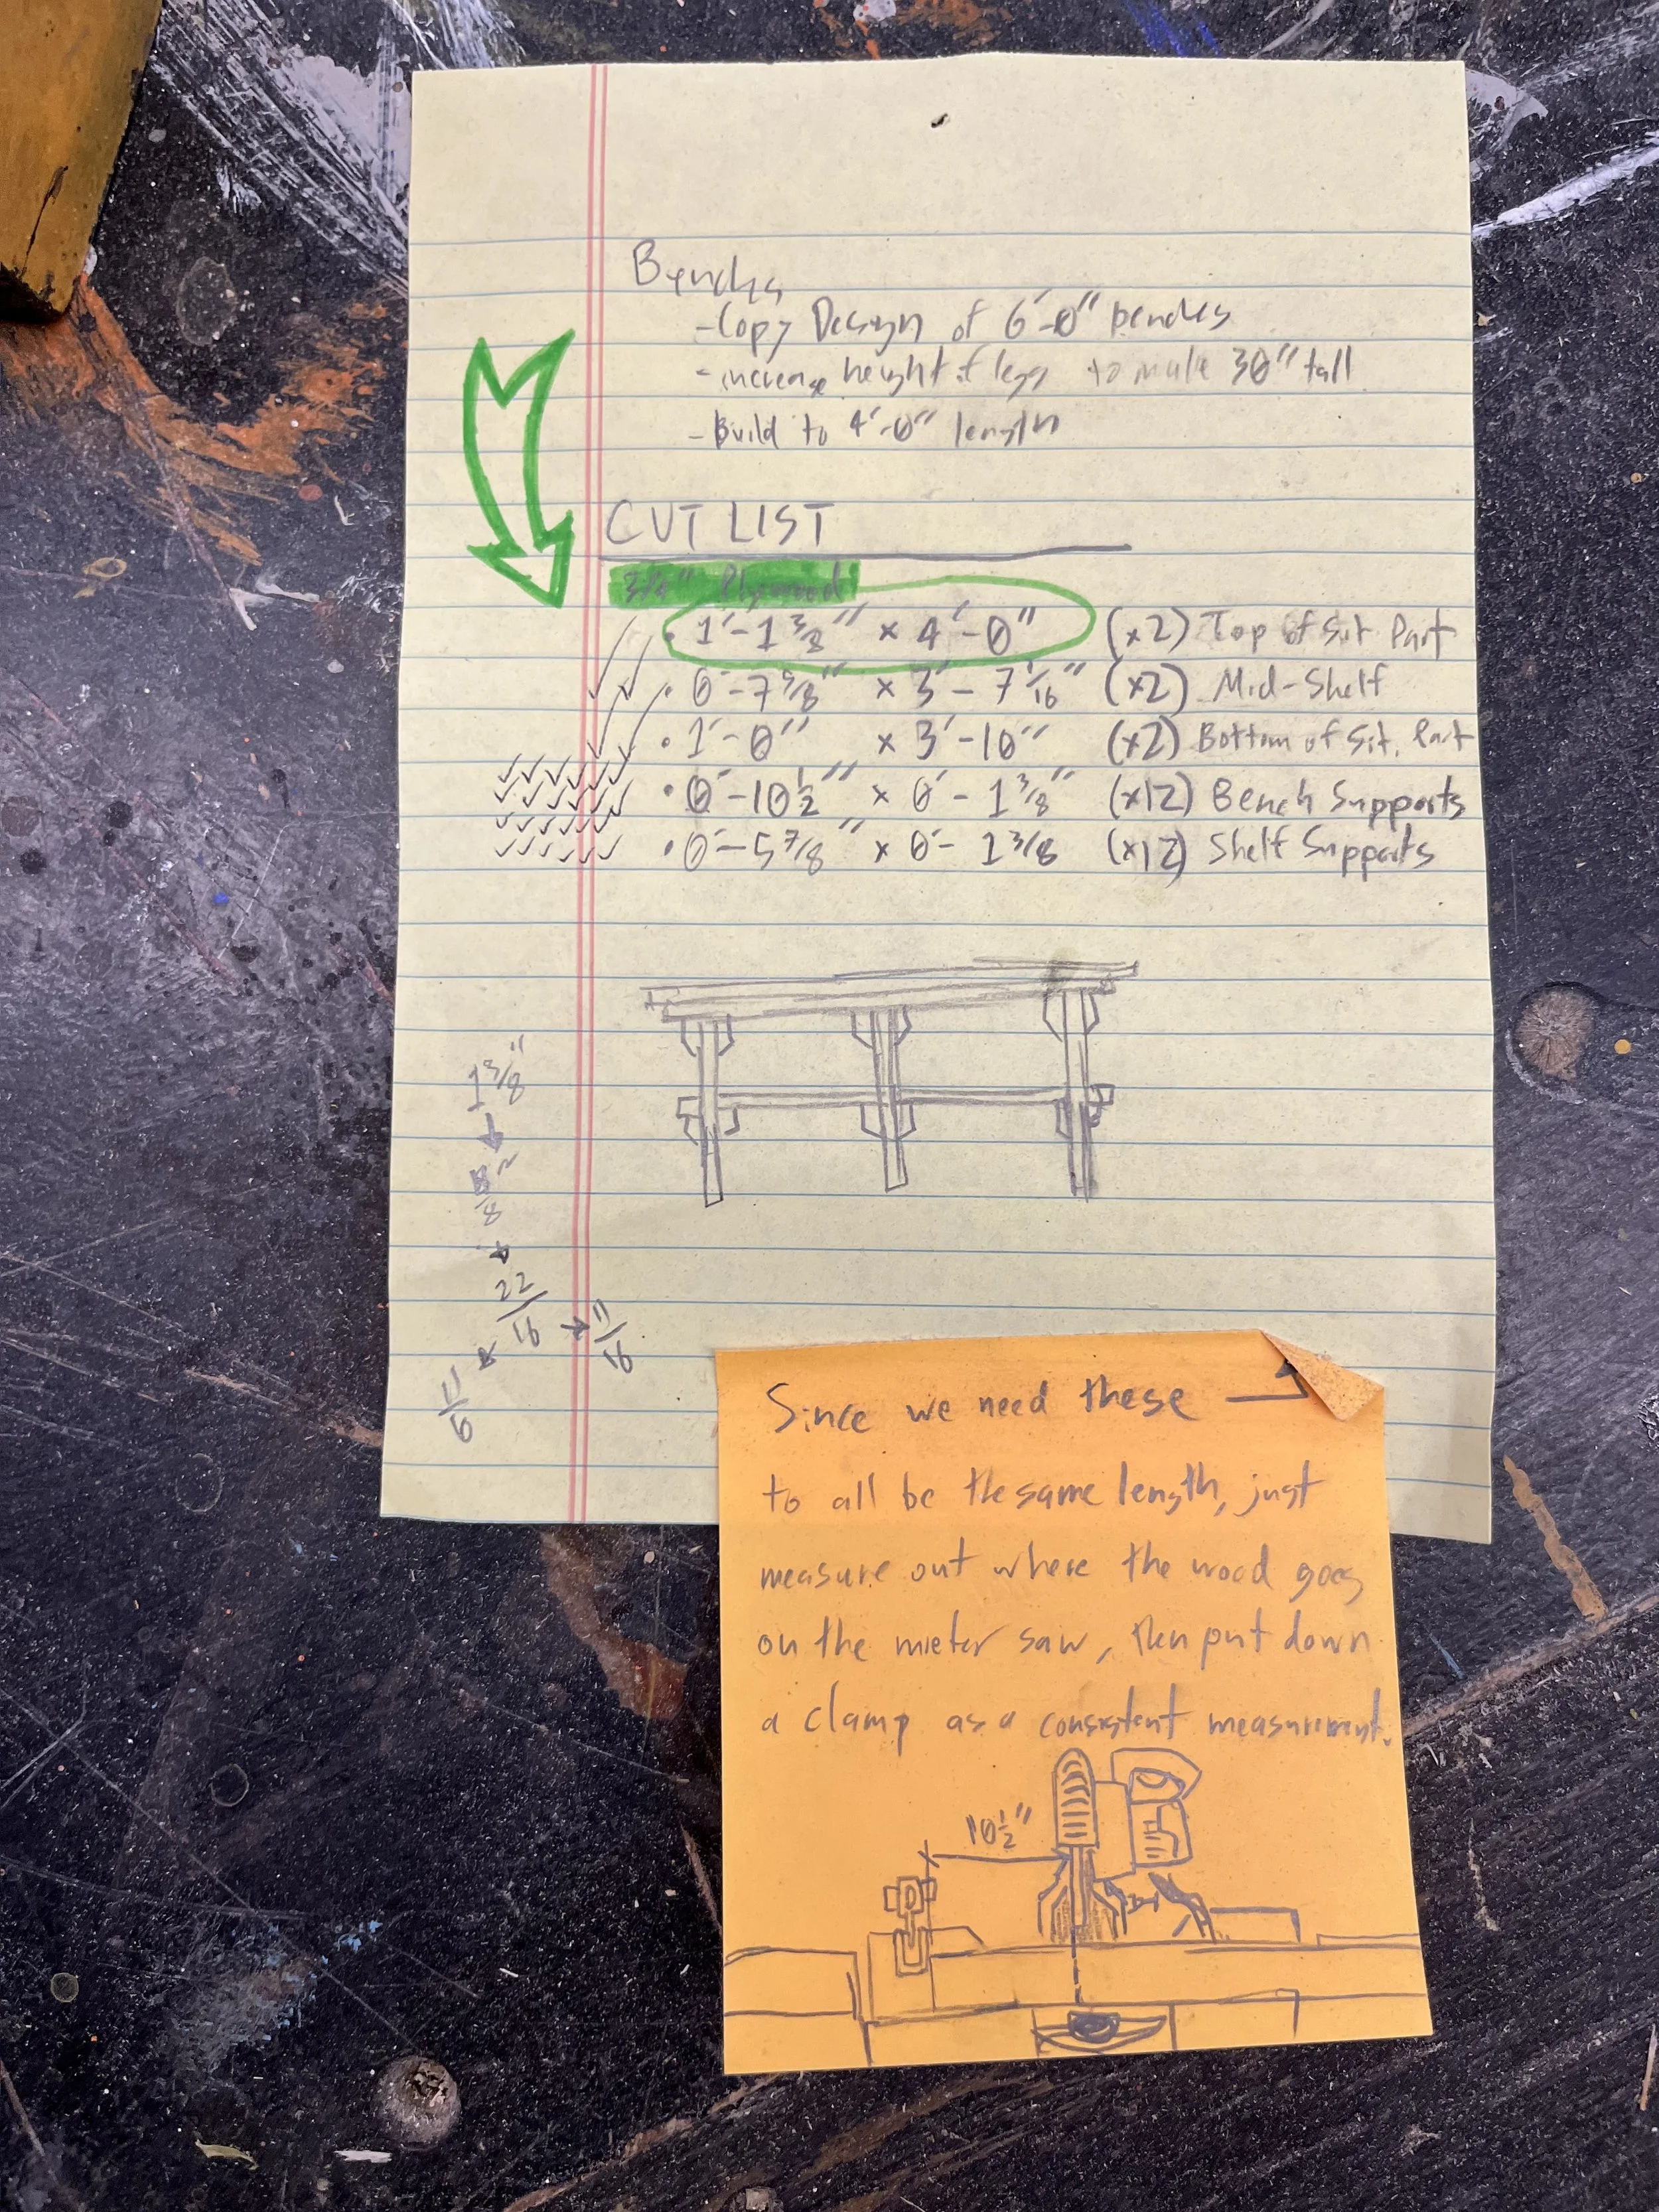 Benches
- Copy Design of 6'-0" benches
- increase height of legs to make 30" tall
- Build to 4'-0" length
CUT LIST
3/4" Plywood
• 1'-1 3/8" x 4'-0" (x2) Top of Sit Part
• 0'-7 5/8" x 3'-7 1/16" (x2) Mid-Shelf
• 1'-0" x 3'-10" (x2) Bottom of Sit. Part
• 0'-10 1/2" x 0'-1 3/8" (x12) Bench Supports
• 0'-5 7/8" x 0'-1 3/8 (x12) Shelf Supports
1 3/8"
22/16 → 11/16
Since we need these
to all be the same length, just
measure out where the wood goes
on the mieter saw, then put down
a clamp as a consistent measurement.
10 1/2"